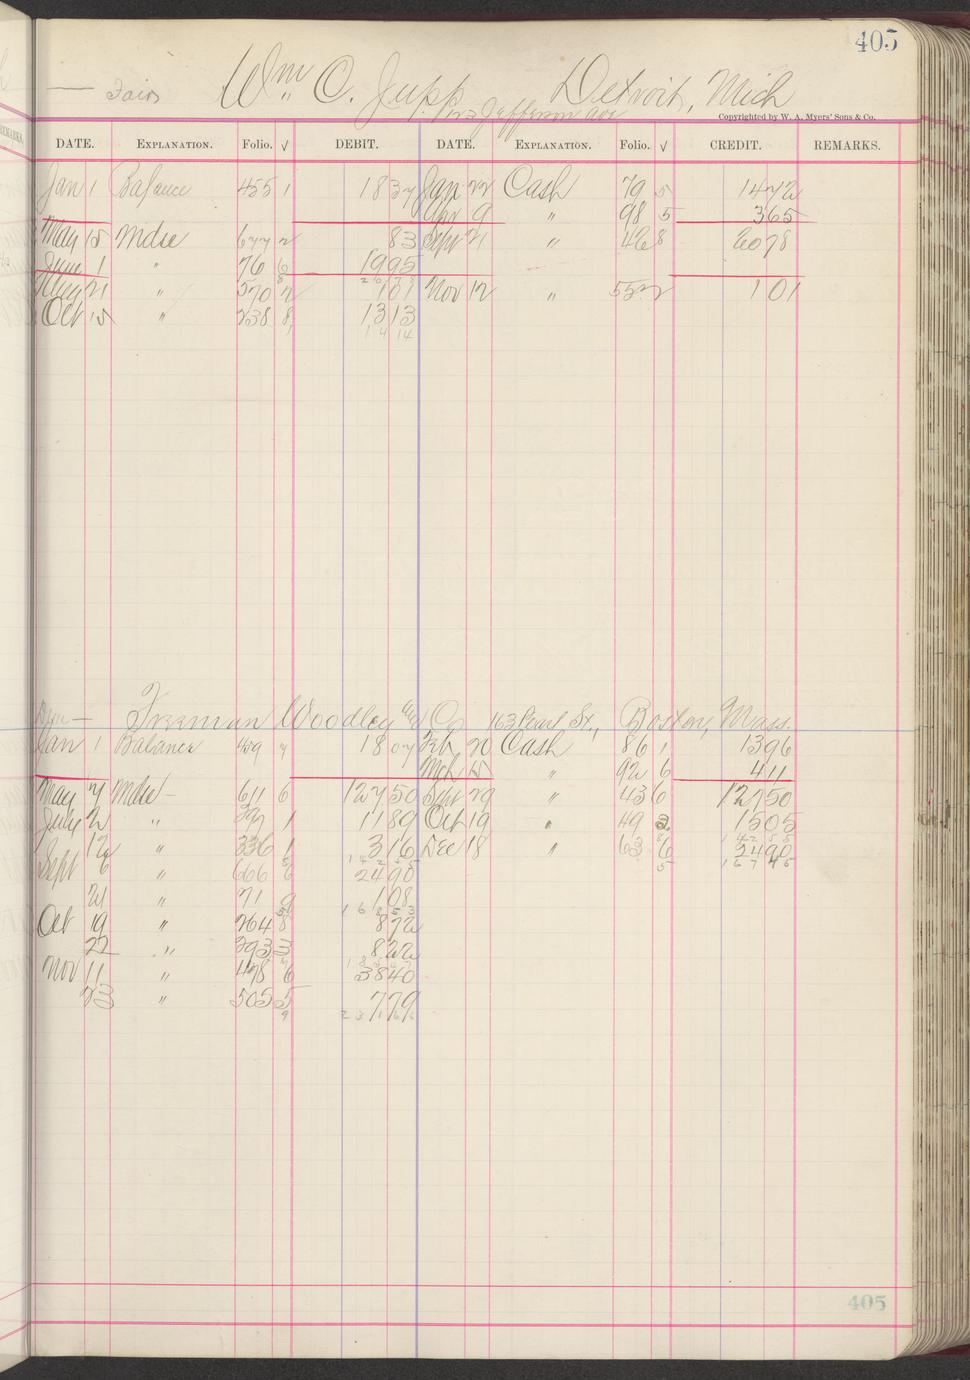 405
— Fair Wm. C. Jupp Detroit, Mich
123 Jefferson Ave
Copyrighted by W. A. Myers' Sons & Co.
DATE. EXPLANATION. Folio. √ DEBIT. DATE. EXPLANATION. Folio. √ CREDIT. REMARKS.
Jan 1 Balance 455 1 18 37 Jan 22 Cash 79 5 14 72
Apr 9 " 98 5 3 65
May 15 Mdse 677 2 83 Sept 21 " 46 8 20 78
June 1 " 76 6 19 95
Aug 21 " 570 2 1 01 Nov 12 " 55 2 1 01
Oct 15 " 238 8 13 13
14 14
Freeman Woodley & Co 163 Pearl St., Boston, Mass.
Jan 1 Balance 459 7 18 07 Feb 20 Cash 86 1 13 96
Mch 15 " 92 6 4 11
May 7 Mdse — 611 6 127 50 Sept 29 " 43 6 127 50
July 2 " 1 11 89 Oct 19 " 49 2 15 05
12 " 336 1 3 16 Dec 18 " 63 6 24 90
Sept 6 " 666 6 24 90
21 " 71 9 1 08
Oct 19 " 264 8 8 72
22 " 293 3 8 22
Nov 11 " 478 6 38 40
23 " 505 5 7 79
405